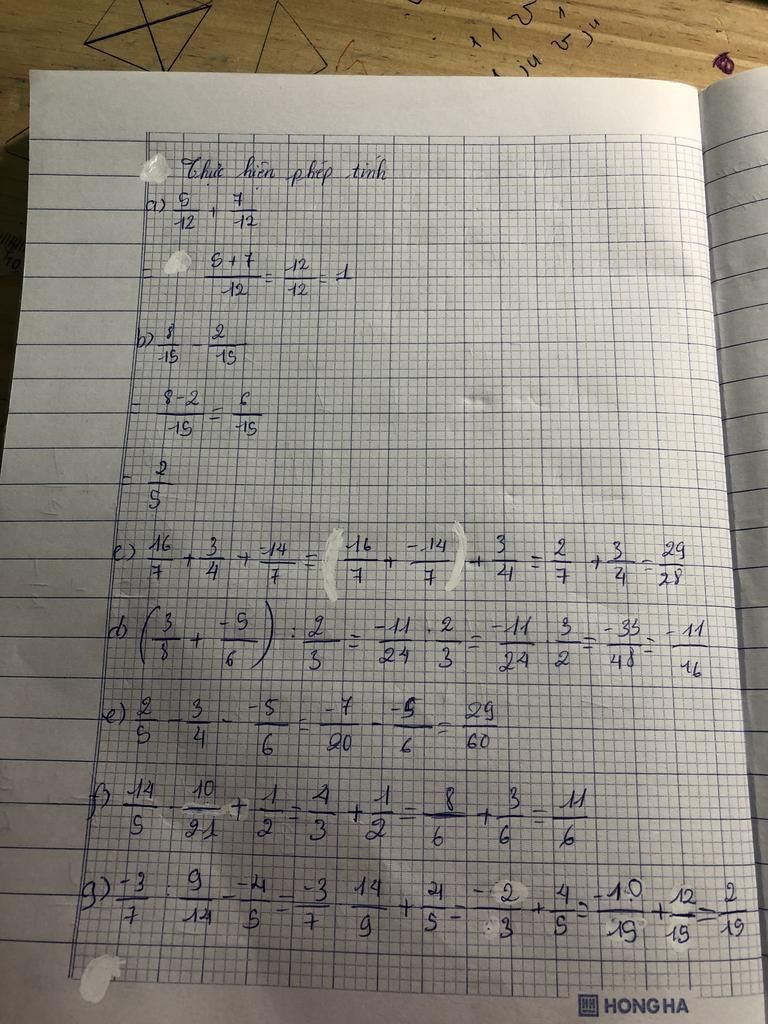 Thực hiện phép tính
a) 5/12 + 7/12
= (5+7)/12 = 12/12 = 1
b) 8/15 - 2/15
= (8-2)/15 = 6/15
= 2/5
c) 16/7 + 3/4 + -14/7 = (16/7 + -14/7) + 3/4 = 2/7 + 3/4 = 29/28
d) (3/8 + -5/6) : 2/3 = -11/24 : 2/3 = -11/24 . 3/2 = -33/48 = -11/16
e) 2/5 - 3/4 - -5/6 = -7/20 - -5/6 = 29/60
f) 14/5 . 10/21 + 1/2 = 4/3 + 1/2 = 8/6 + 3/6 = 11/6
g) -3/7 : 9/14 - -4/5 = -3/7 . 14/9 + 4/5 = -2/3 + 4/5 = -10/15 + 12/15 = 2/15
HONG HA